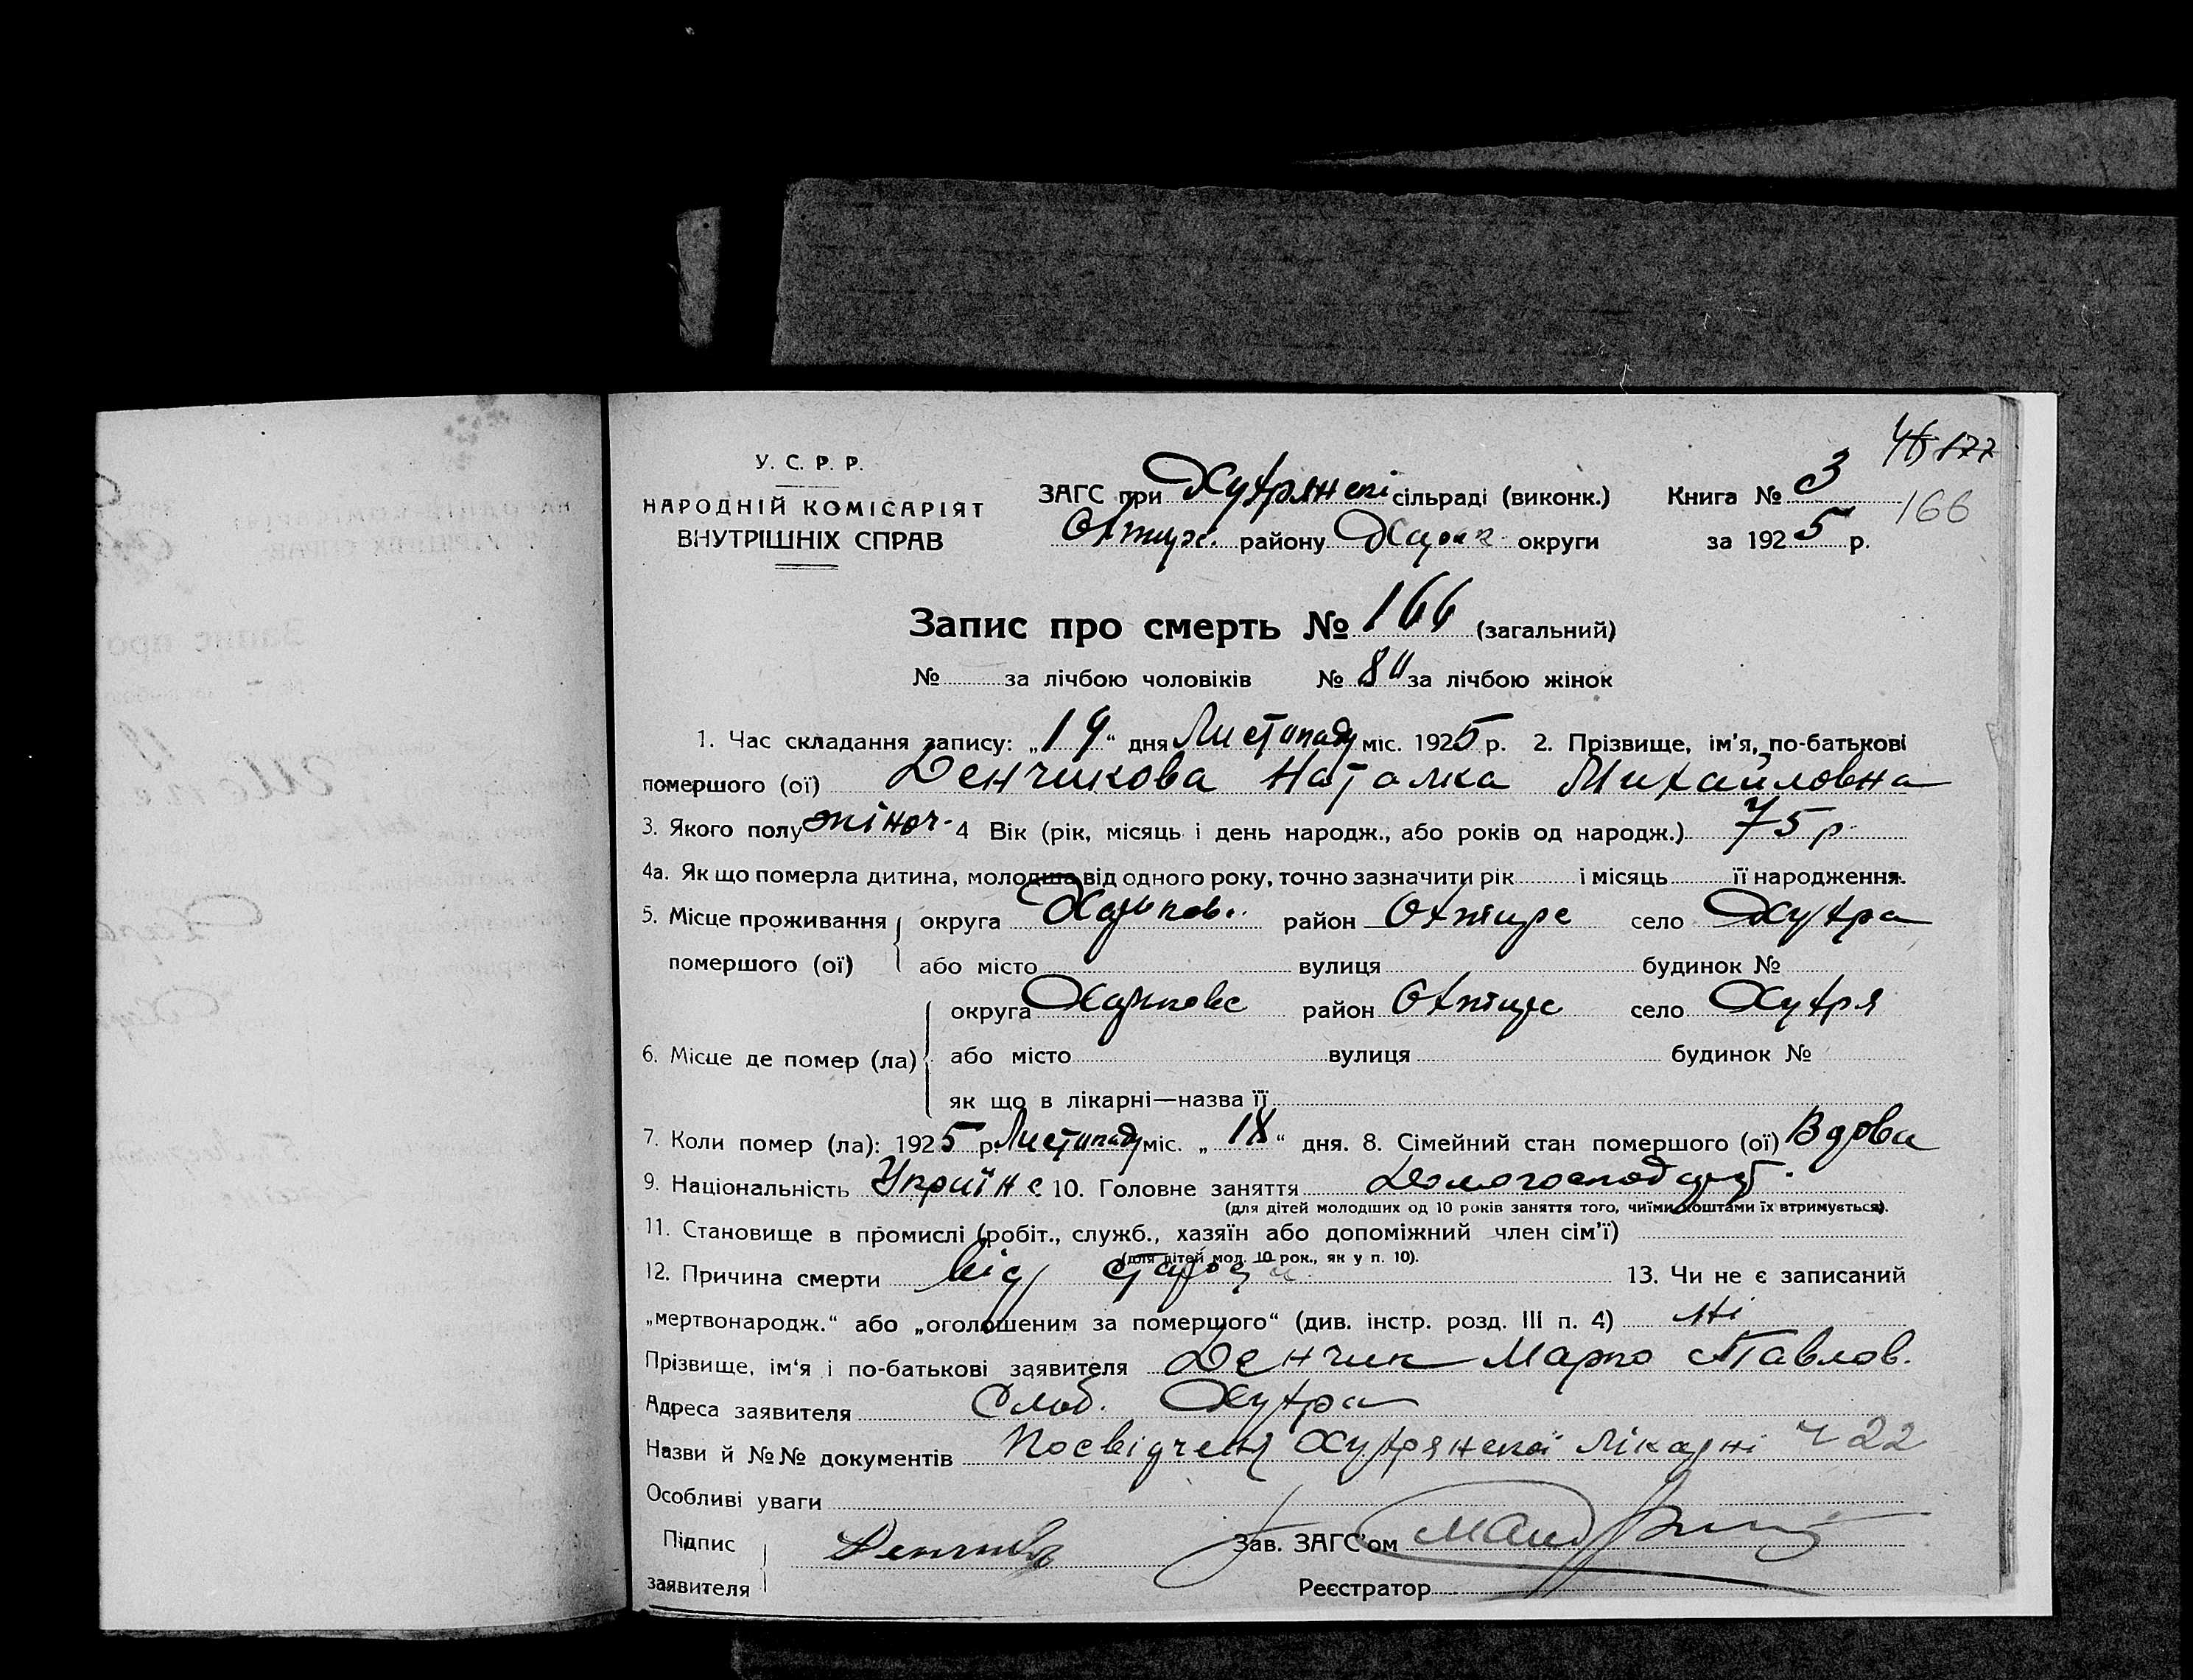 У. С. Р. Р.
НАРОДНІЙ КОМІСАРІЯТ
ВНУТРІШНІХ СПРАВ
ЗАГС при Хухрянскі сільраді (виконк.)
Охтирс. району Харк. округи
Книга № 3
за 1925 р.
177
166
Запис про смерть № 166 (загальний)
№ за лічбою чоловіків № 84 за лічбою жінок
1. Час складання запису: „19“ дня Листопаду міс. 1925 р. 2. Прізвище, ім'я, по-батькові
помершого (ої) Денчикова Наталка Михайловна
3. Якого полу жіноч. 4 Вік (рік, місяць і день народж., або років од народж.) 75 р.
4а. Як що померла дитина, молодша від одного року, точно зазначити рік і місяць її народження.
5. Місце проживання округа Харьков. район Охтирс село Хухра
помершого (ої) або місто вулиця будинок №
округа Харковс район Охтирс село Хухря
6. Місце де помер (ла) або місто вулиця будинок №
як що в лікарні—назва її
7. Коли помер (ла): 1925 р. Листопаду міс. „18“ дня. 8. Сімейний стан помершого (ої) Вдова
9. Національність Україн с 10. Головне заняття
(для дітей молодших од 10 років заняття того, чиїми коштами їх втримується).
11. Становище в промислі (робіт., служб., хазяїн або допоміжний член сім'ї)
(для дітей мол. 10 рок., як у п. 10).
12. Причина смерти від 13. Чи не є записаний
„мертвонародж.“ або „оголошеним за помершого“ (див. інстр. розд. III п. 4) Ні
Прізвище, ім'я і по-батькові заявителя Денчик Марко Павлов.
Адреса заявителя Слоб. Хухра
Назви й №№ документів Посвідченя Хухрянскої Лікарні ч 22
Особливі уваги
Підпис
заявителя
Зав. ЗАГС'ом
Реєстратор